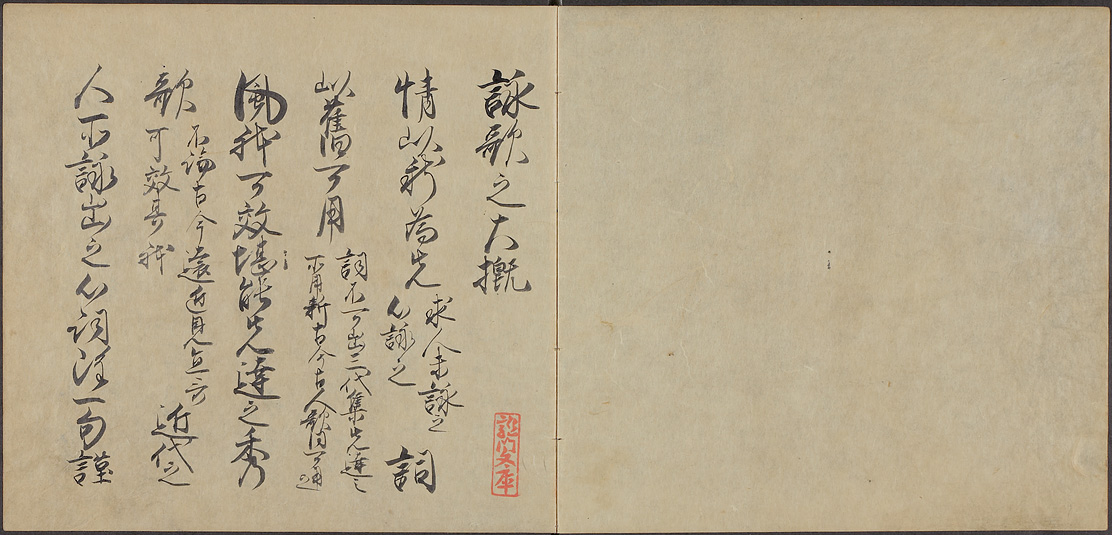 詠歌之大概
情以新為先 求人未詠之
心詠之 詞
以舊可用 詞不可出三代集先達之
所用新古今古人歌同可用之
風躰可效堪能先達之秀
歌 不論古今遠近見宜哥
可效其躰 近代之
人所詠出之心詞雖一句謹